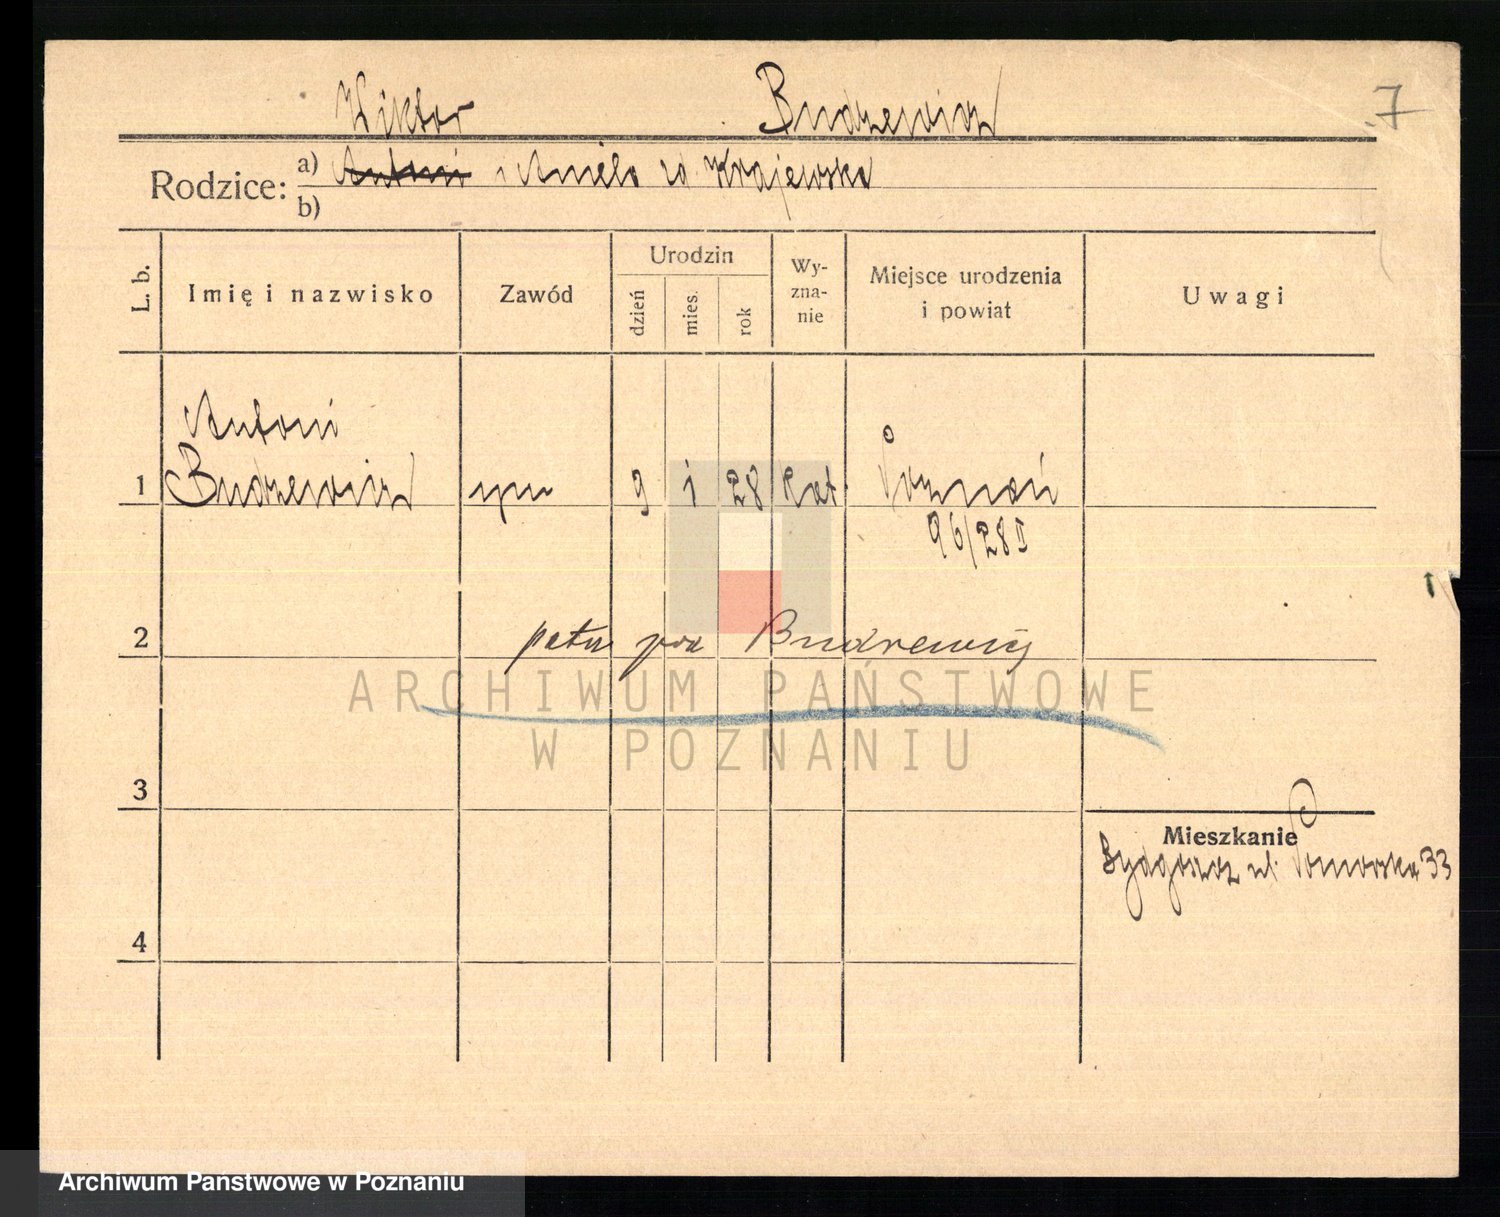 Wiktor Budzewicz
7
Rodzice: a) Antoni i Aniela zd Krajewska
b)
L. b. Imię i nazwisko Zawód Urodzin dzień mies. rok Wy-zna-nie Miejsce urodzenia i powiat Uwagi
Antoni
1 Budzewicz syn 9 1 28 kat. Poznań
96/28 II
2 patrz pod Budrewicz
ARCHIWUM PAŃSTWOWE
W POZNANIU
3
Mieszkanie
Bydgoszcz ul. Pomorska 33
4
Archiwum Państwowe w Poznaniu